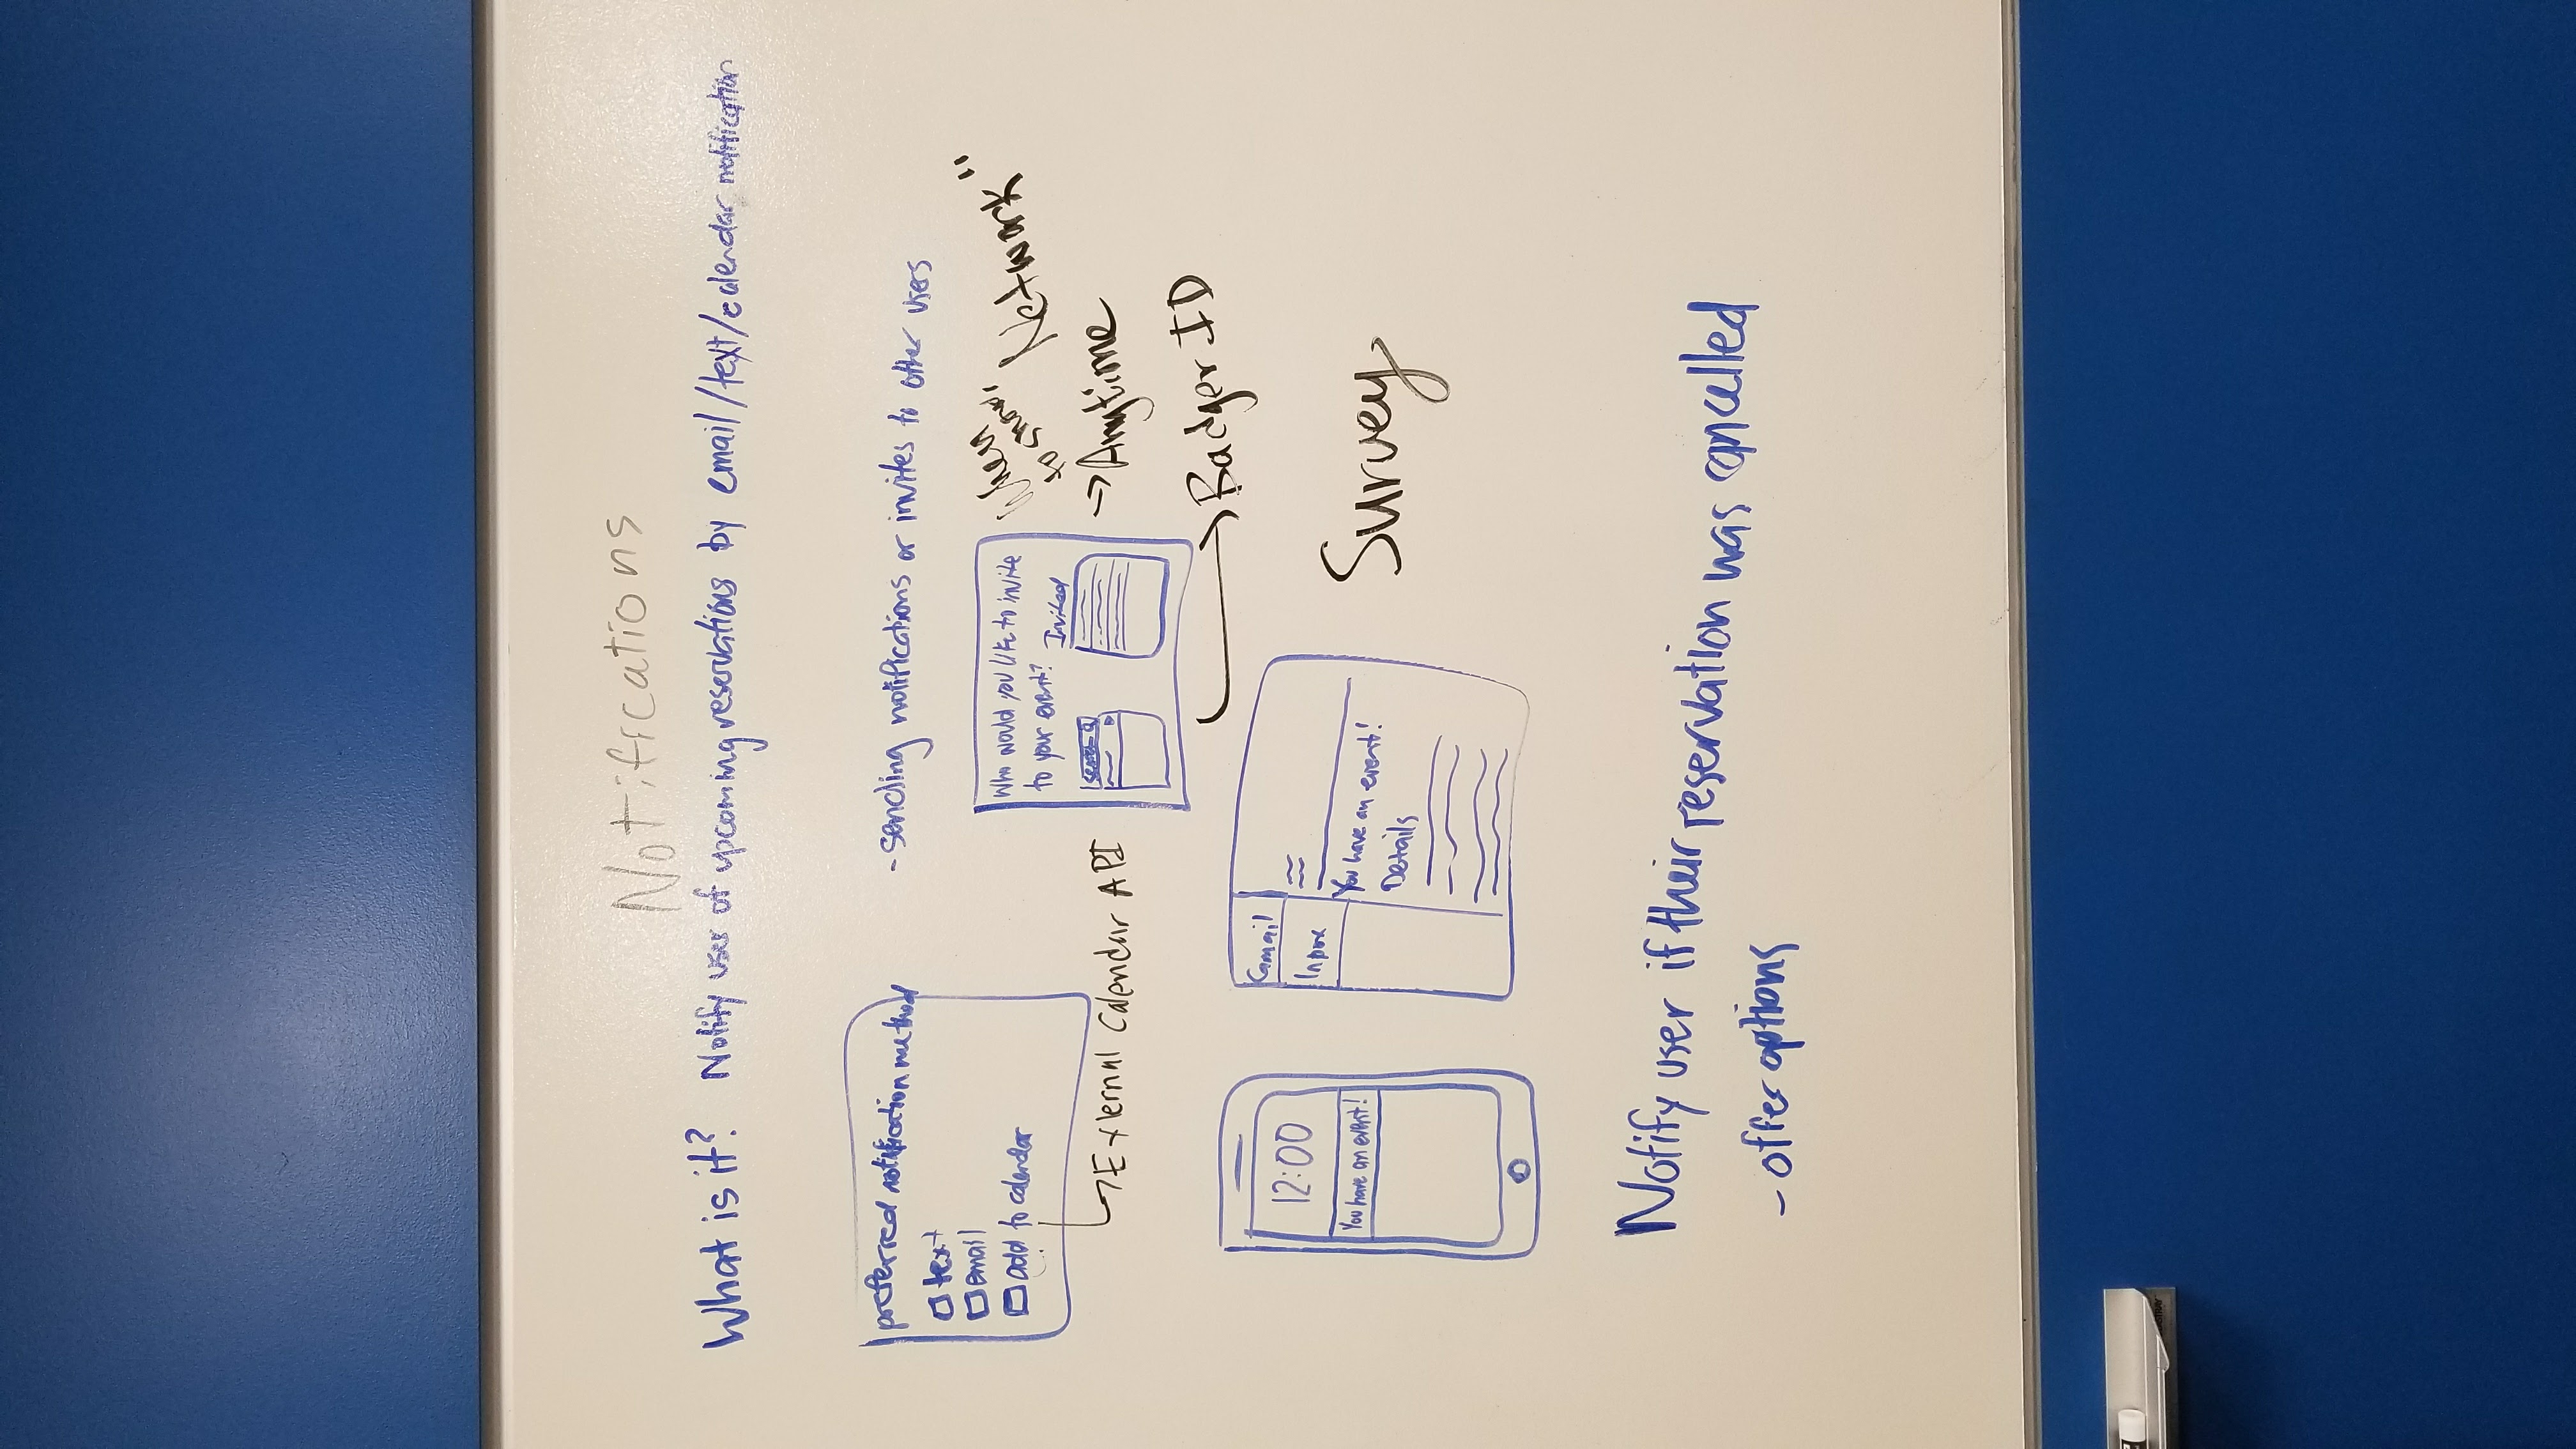 Notifications
What is it? Notify user of upcoming reservations by email/text/calendar notification
preferred notification method
text
email
add to calendar
External Calendar API
-sending notifications or invites to other users
Who would you like to invite
to your event?
Invited
search
When
to show,
Network"
→Anytime
Badger ID
12:00
You have an event!
Gmail
Inbox
You have an event!
Details
Survey
Notify user if their reservation was cancelled
- offer options